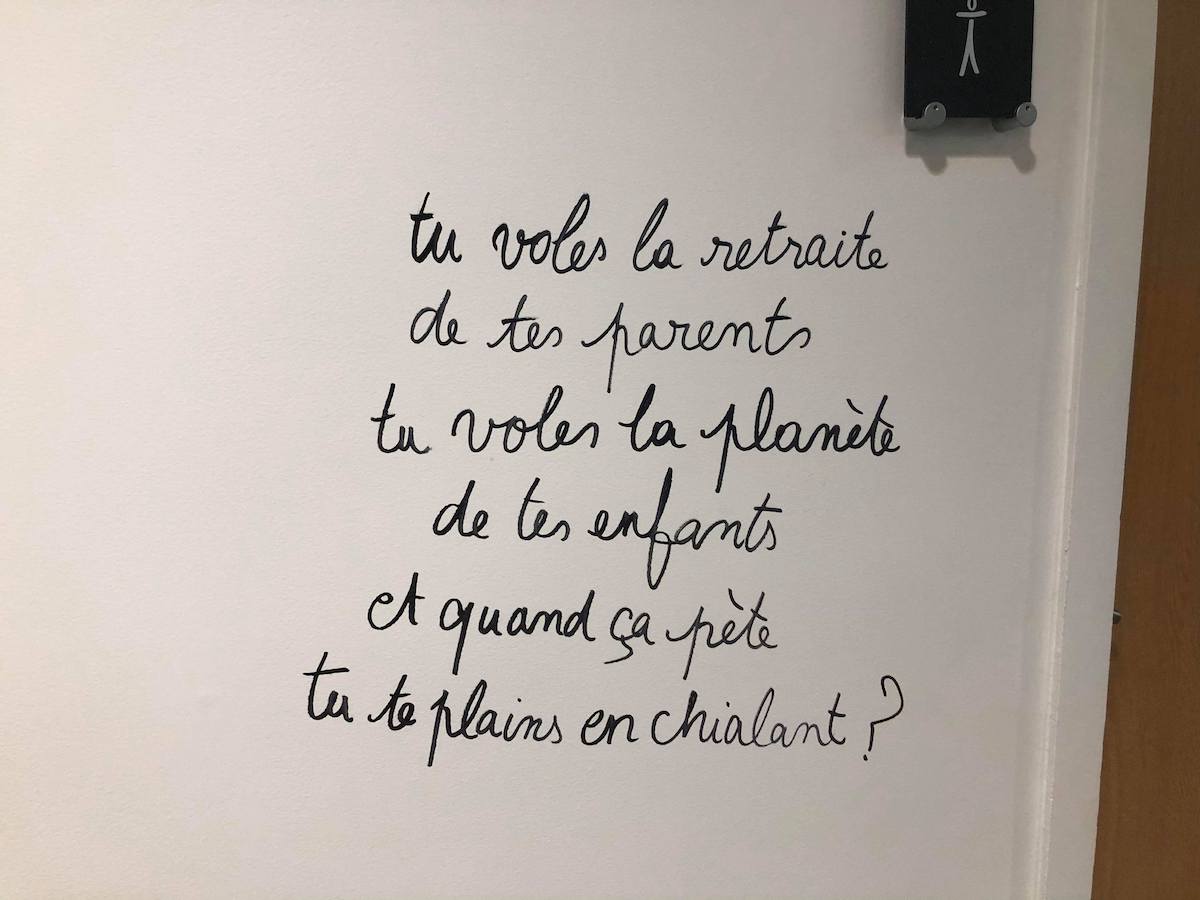 tu voles la retraite
de tes parents
tu voles la planète
de tes enfants
et quand ça pète
tu te plains en chialant ?